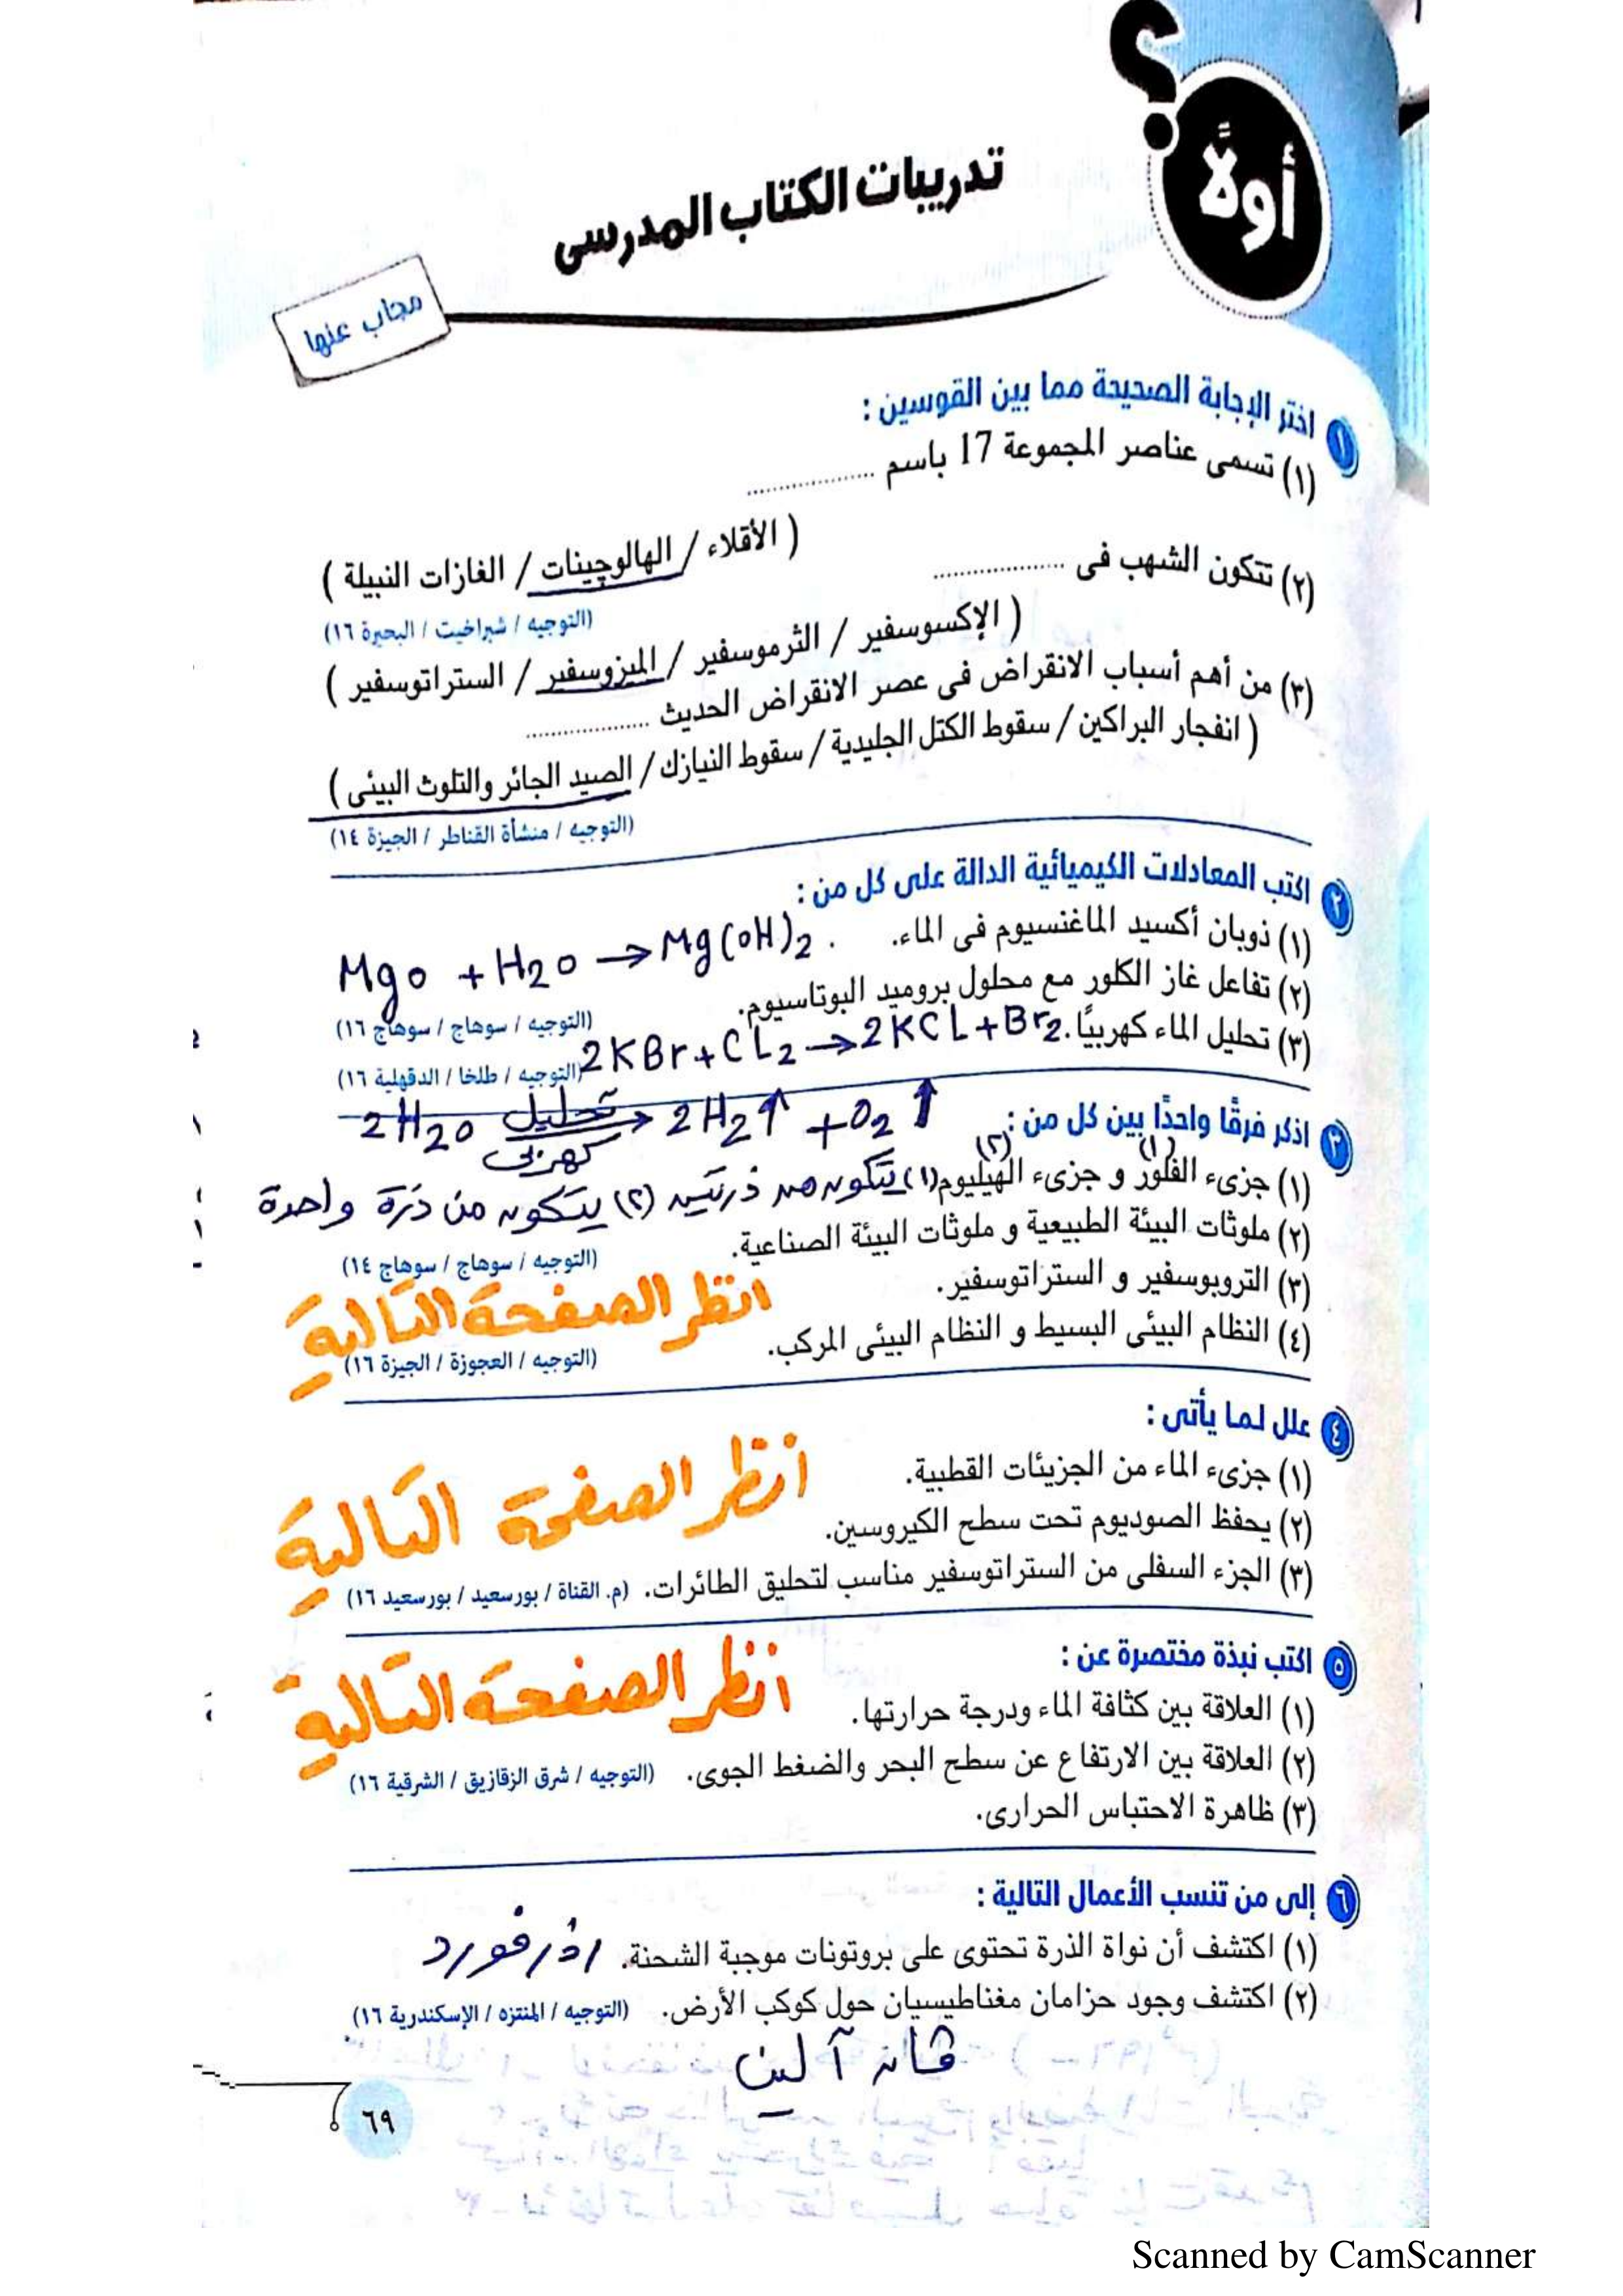 أولًا
؟
تدريبات الكتاب المدرسى
مجاب عنها
١ اختر الإجابة الصحيحة مما بين القوسين :
(١) تسمى عناصر المجموعة 17 باسم ....................
( الأقلاء / الهالوچينات / الغازات النبيلة )
(التوجيه / شبراخيت / البحيرة ١٦)
(٢) تتكون الشهب فى ....................
( الإكسوسفير / الثرموسفير / الميزوسفير / الستراتوسفير )
(٣) من أهم أسباب الانقراض فى عصر الانقراض الحديث ....................
( انفجار البراكين / سقوط الكتل الجليدية / سقوط النيازك / الصيد الجائر والتلوث البيئى )
(التوجيه / منشأة القناطر / الجيزة ١٤)
٢ اكتب المعادلات الكيميائية الدالة على كل من :
(١) ذوبان أكسيد الماغنسيوم فى الماء.
MgO + H2O → Mg(OH)2 .
(٢) تفاعل غاز الكلور مع محلول بروميد البوتاسيوم.
(التوجيه / سوهاج / سوهاج ١٦)
2KBr + CL2 → 2KCL + Br2
(٣) تحليل الماء كهربيًا.
(التوجيه / طلخا / الدقهلية ١٦)
2H2O تحليل كهربى → 2H2↑ + O2↑
٣ اذكر فرقًا واحدًا بين كل من :
(١) (٢)
(١) جزىء الفلور و جزىء الهيليوم (١) يتكون من ذرتين (٢) يتكون من ذرة واحدة
(٢) ملوثات البيئة الطبيعية و ملوثات البيئة الصناعية.
(التوجيه / سوهاج / سوهاج ١٤)
(٣) التروبوسفير و الستراتوسفير.
انظر الصفحة التالية
(٤) النظام البيئى البسيط و النظام البيئى المركب.
(التوجيه / العجوزة / الجيزة ١٦)
٤ علل لما يأتى :
(١) جزىء الماء من الجزيئات القطبية.
انظر الصفحة التالية
(٢) يحفظ الصوديوم تحت سطح الكيروسين.
(٣) الجزء السفلى من الستراتوسفير مناسب لتحليق الطائرات. (م. القناة / بورسعيد / بورسعيد ١٦)
٥ اكتب نبذة مختصرة عن :
انظر الصفحة التالية
(١) العلاقة بين كثافة الماء ودرجة حرارتها.
(٢) العلاقة بين الارتفاع عن سطح البحر والضغط الجوى. (التوجيه / شرق الزقازيق / الشرقية ١٦)
(٣) ظاهرة الاحتباس الحرارى.
٦ إلى من تنسب الأعمال التالية :
(١) اكتشف أن نواة الذرة تحتوى على بروتونات موجبة الشحنة. رذرفورد
(٢) اكتشف وجود حزامان مغناطيسيان حول كوكب الأرض. (التوجيه / المنتزه / الإسكندرية ١٦)
ڤان آلين
٦٩
Scanned by CamScanner